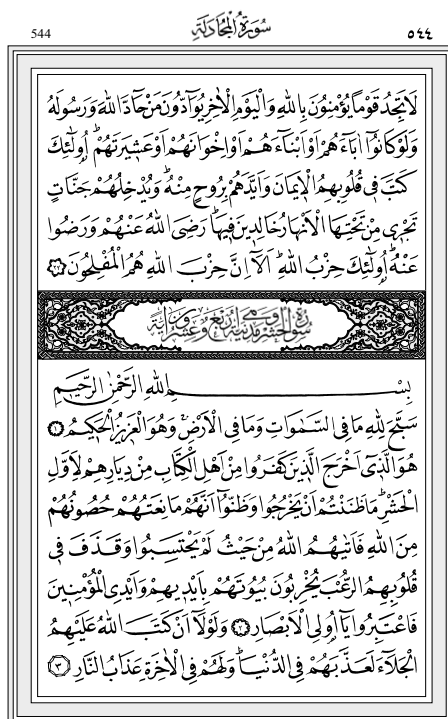 544 سُورَةُ الْمُجَادَلَةِ ٥٤٤
لَا تَجِدُ قَوْمًا يُؤْمِنُونَ بِاللّٰهِ وَالْيَوْمِ الْاٰخِرِ يُوَٓادُّونَ مَنْ حَٓادَّ اللّٰهَ وَرَسُولَهُ
وَلَوْ كَانُٓوا اٰبَٓاءَهُمْ اَوْ اَبْنَٓاءَهُمْ اَوْ اِخْوَانَهُمْ اَوْ عَش۪يرَتَهُمْۜ اُو۬لٰٓئِكَ
كَتَبَ ف۪ي قُلُوبِهِمُ الْا۪يمَانَ وَاَيَّدَهُمْ بِرُوحٍ مِنْهُۜ وَيُدْخِلُهُمْ جَنَّاتٍ
تَجْر۪ي مِنْ تَحْتِهَا الْاَنْهَارُ خَالِد۪ينَ ف۪يهَاۜ رَضِيَ اللّٰهُ عَنْهُمْ وَرَضُوا
عَنْهُۜ اُو۬لٰٓئِكَ حِزْبُ اللّٰهِۜ اَلَٓا اِنَّ حِزْبَ اللّٰهِ هُمُ الْمُفْلِحُونَ ﴿٢٢﴾
سُورَةُ الْحَشْرِ مَدَنِيَّةٌ وَهِيَ اَرْبَعٌ وَعِشْرُونَ اٰيَةً
بِسْمِ اللّٰهِ الرَّحْمٰنِ الرَّح۪يمِ
سَبَّحَ لِلّٰهِ مَا فِي السَّمٰوَاتِ وَمَا فِي الْاَرْضِۚ وَهُوَ الْعَز۪يزُ الْحَك۪يمُ ﴿١﴾
هُوَ الَّذ۪ٓي اَخْرَجَ الَّذ۪ينَ كَفَرُوا مِنْ اَهْلِ الْكِتَابِ مِنْ دِيَارِهِمْ لِاَوَّلِ
الْحَشْرِۜ مَا ظَنَنْتُمْ اَنْ يَخْرُجُوا وَظَنُّٓوا اَنَّهُمْ مَانِعَتُهُمْ حُصُونُهُمْ
مِنَ اللّٰهِ فَاَتٰيهُمُ اللّٰهُ مِنْ حَيْثُ لَمْ يَحْتَسِبُوا وَقَذَفَ ف۪ي
قُلُوبِهِمُ الرُّعْبَ يُخْرِبُونَ بُيُوتَهُمْ بِاَيْد۪يهِمْ وَاَيْدِي الْمُؤْمِن۪ينَ
فَاعْتَبِرُوا يَٓا اُو۬لِي الْاَبْصَارِ ﴿٢﴾ وَلَوْلَٓا اَنْ كَتَبَ اللّٰهُ عَلَيْهِمُ
الْجَلَٓاءَ لَعَذَّبَهُمْ فِي الدُّنْيَاۜ وَلَهُمْ فِي الْاٰخِرَةِ عَذَابُ النَّارِ ﴿٣﴾